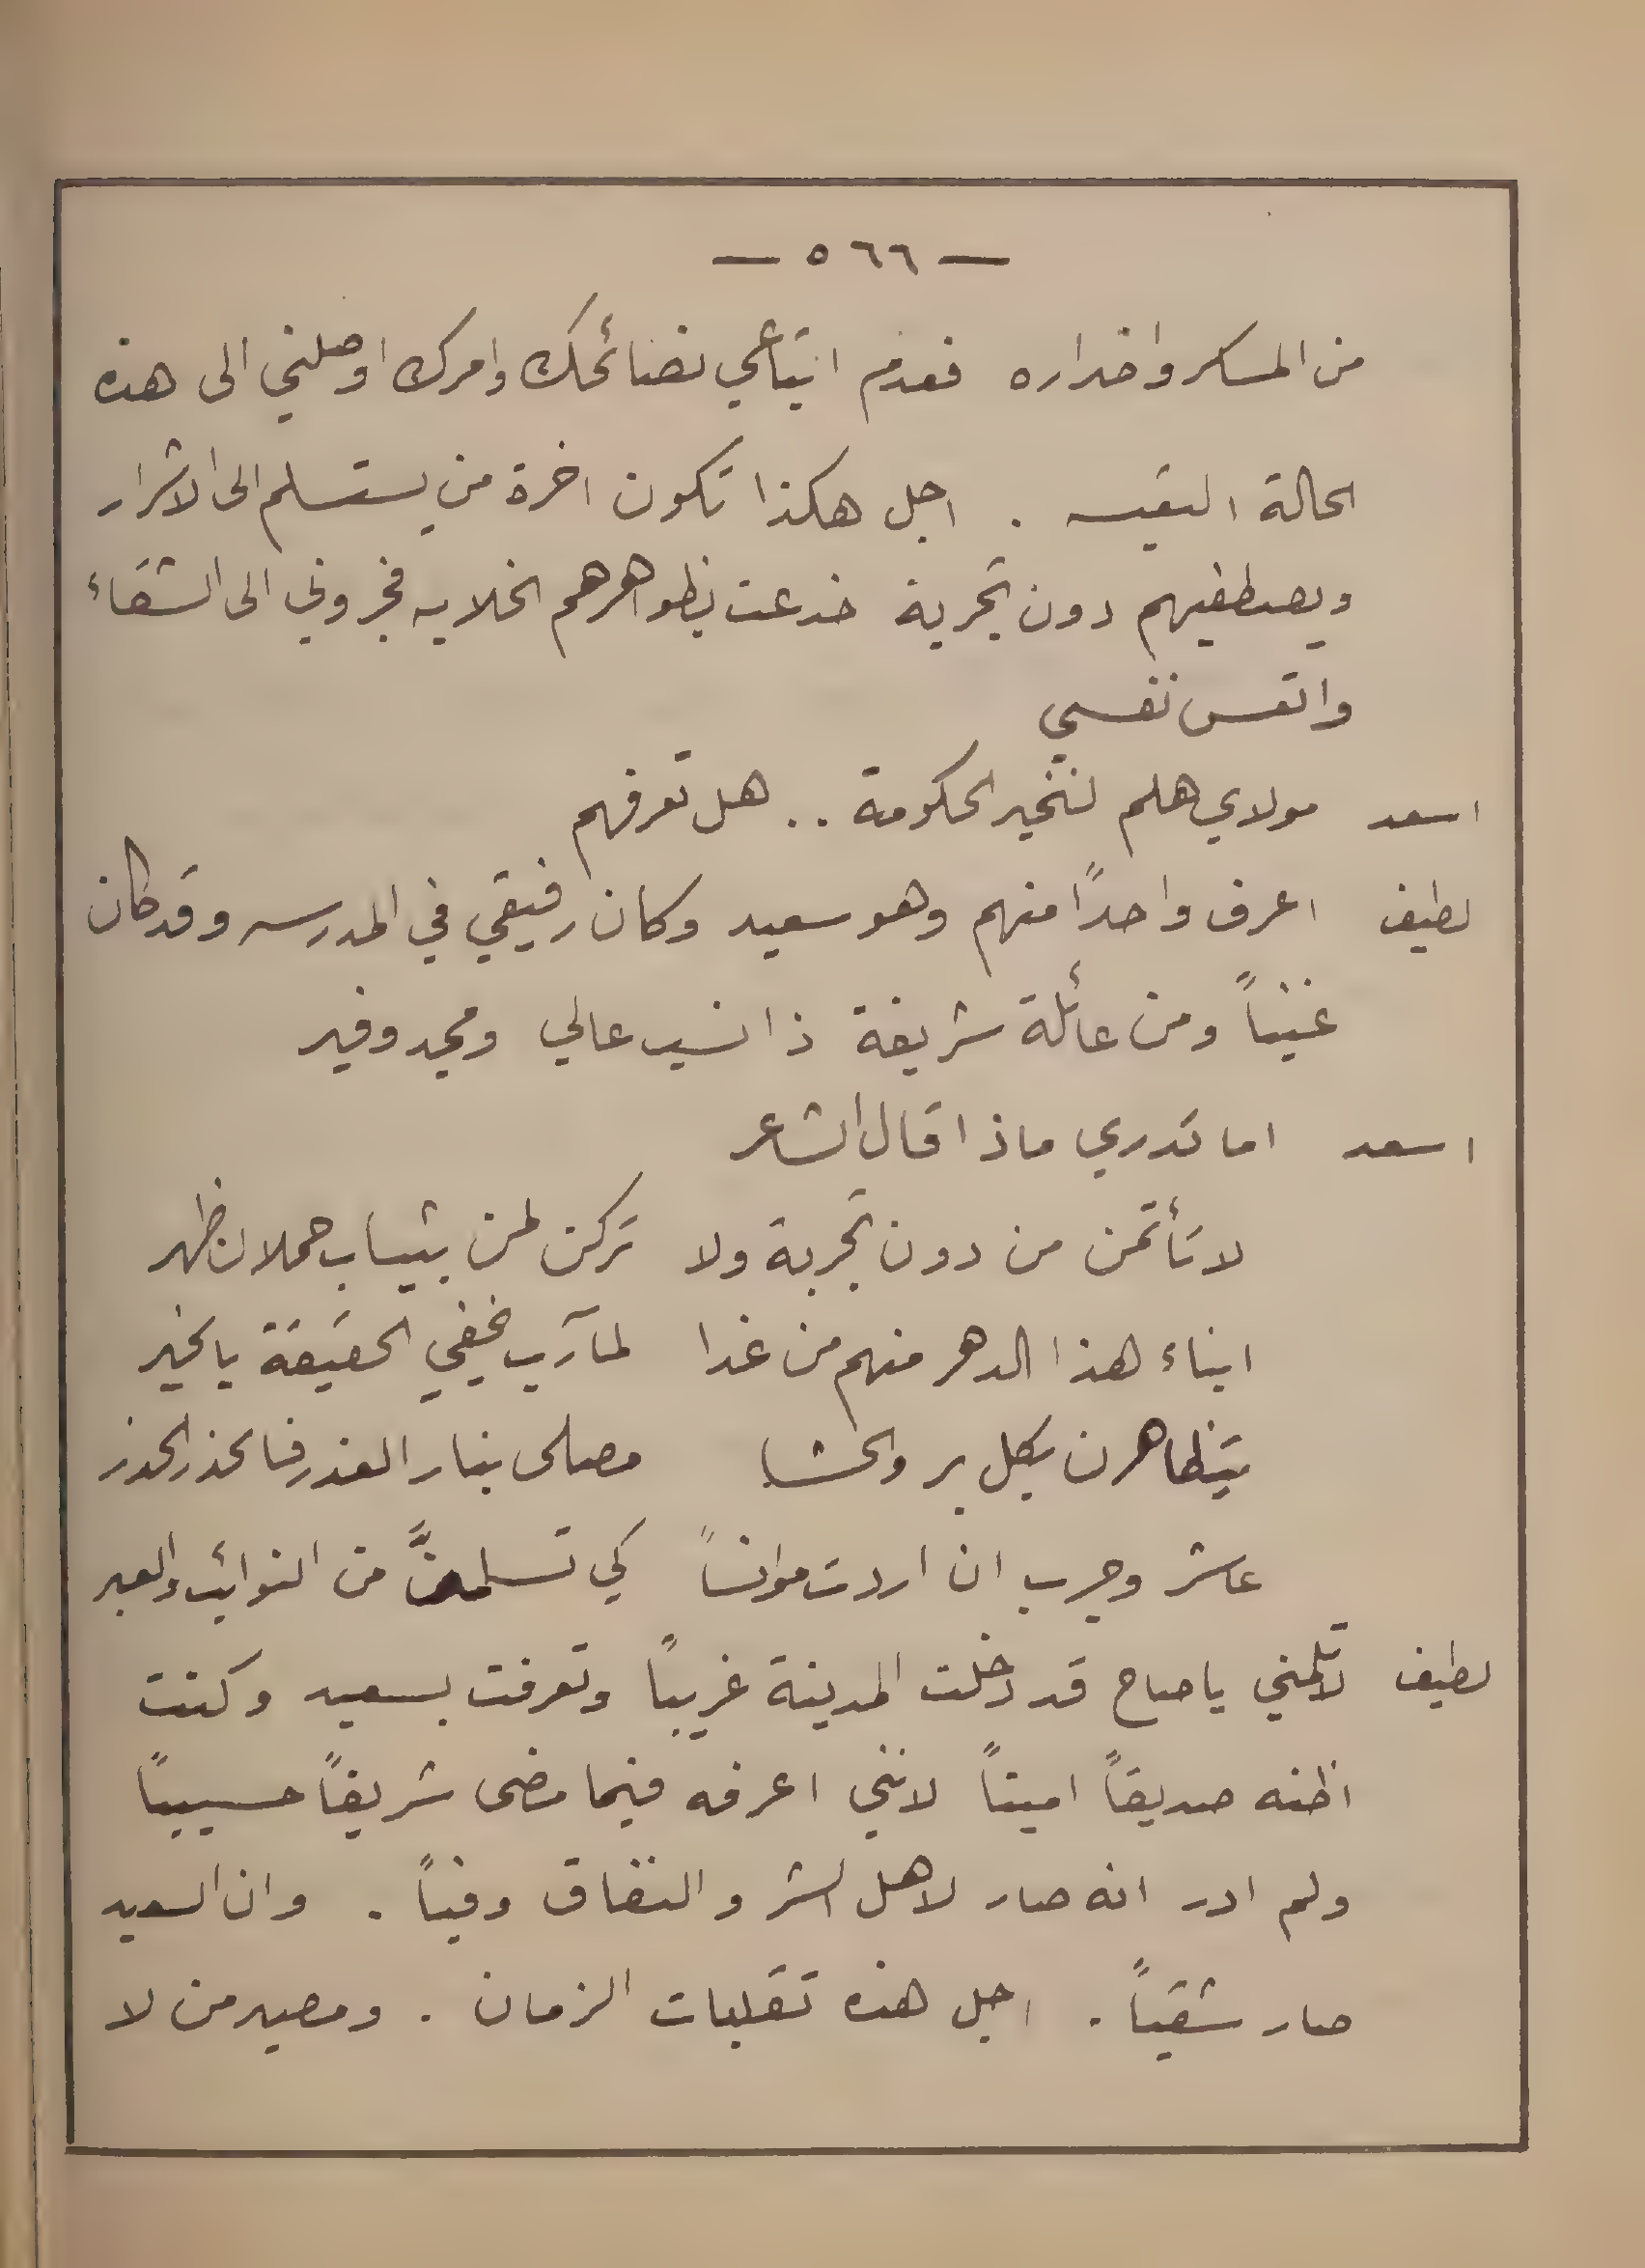 — ٥٦٦ —
من المسكر واضراره فعدم اتباعي نصائحك وامرك اوصلني الى هذه
الحالة التعيسه . اجل هكذا تكون اخرة من يستسلم الى الاشرار
ويصطفيهم دون تجربة خدعت بظواهرهم الخلابه فجروني الى الشقاء
واتعس نفسي
اسعد مولاي هلم لنخبر الحكومة .. هل تعرفهم
لطيف اعرف واحداً منهم وهو سعيد وكان رفيقي في المدرسه وقد كان
غنياً ومن عائلة شريفة ذا نسب عالي ومجد وفير
اسعد اما تدري ماذا قال الشاعر
لا تأتمن من دون تجربة ولا تركن لمن بثياب حملان ظهر
ابناء هذا الدهر منهم من غدا لمآرب يخفي الحقيقة يا لخير
يتظاهرن بكل بر والحشا مصلى بنار الغدر فالحذر الحذر
عاشر وجرب ان اردت موانساً كي تسلمنَّ من النوائب والعبر
لطيف لا تلمني يا صاح قد دخلت المدينة غريباً وتعرفت بسعيد وكنت
اظنه صديقاً اميناً لانني اعرفه فيما مضى شريفاً حسيباً
ولم ادر انه صار لاهل الشر والنفاق وفياً . وان السعيد
صار شقياً . اجل هذه تقلبات الزمان . ومصير من لا